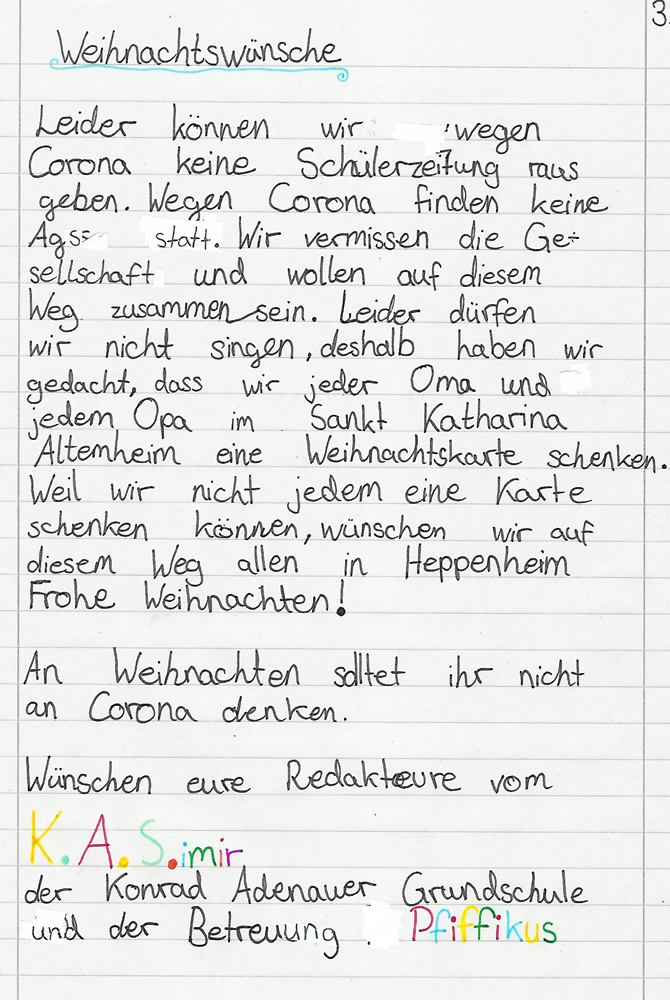 3.
Weihnachtswünsche
Leider können wir wegen
Corona keine Schülerzeitung raus
geben. Wegen Corona finden keine
Agss statt. Wir vermissen die Ge-
sellschaft und wollen auf diesem
Weg zusammen sein. Leider dürfen
wir nicht singen, deshalb haben wir
gedacht, dass wir jeder Oma und
jedem Opa im Sankt Katharina
Altemheim eine Weihnachtskarte schenken.
Weil wir nicht jedem eine Karte
schenken können, wünschen wir auf
diesem Weg allen in Heppenheim
Frohe Weihnachten!
An Weihnachten solltet ihr nicht
an Corona denken.
Wünschen eure Redakteure vom
K.A.S.imir
der Konrad Adenauer Grundschule
und der Betreuung Pfiffikus